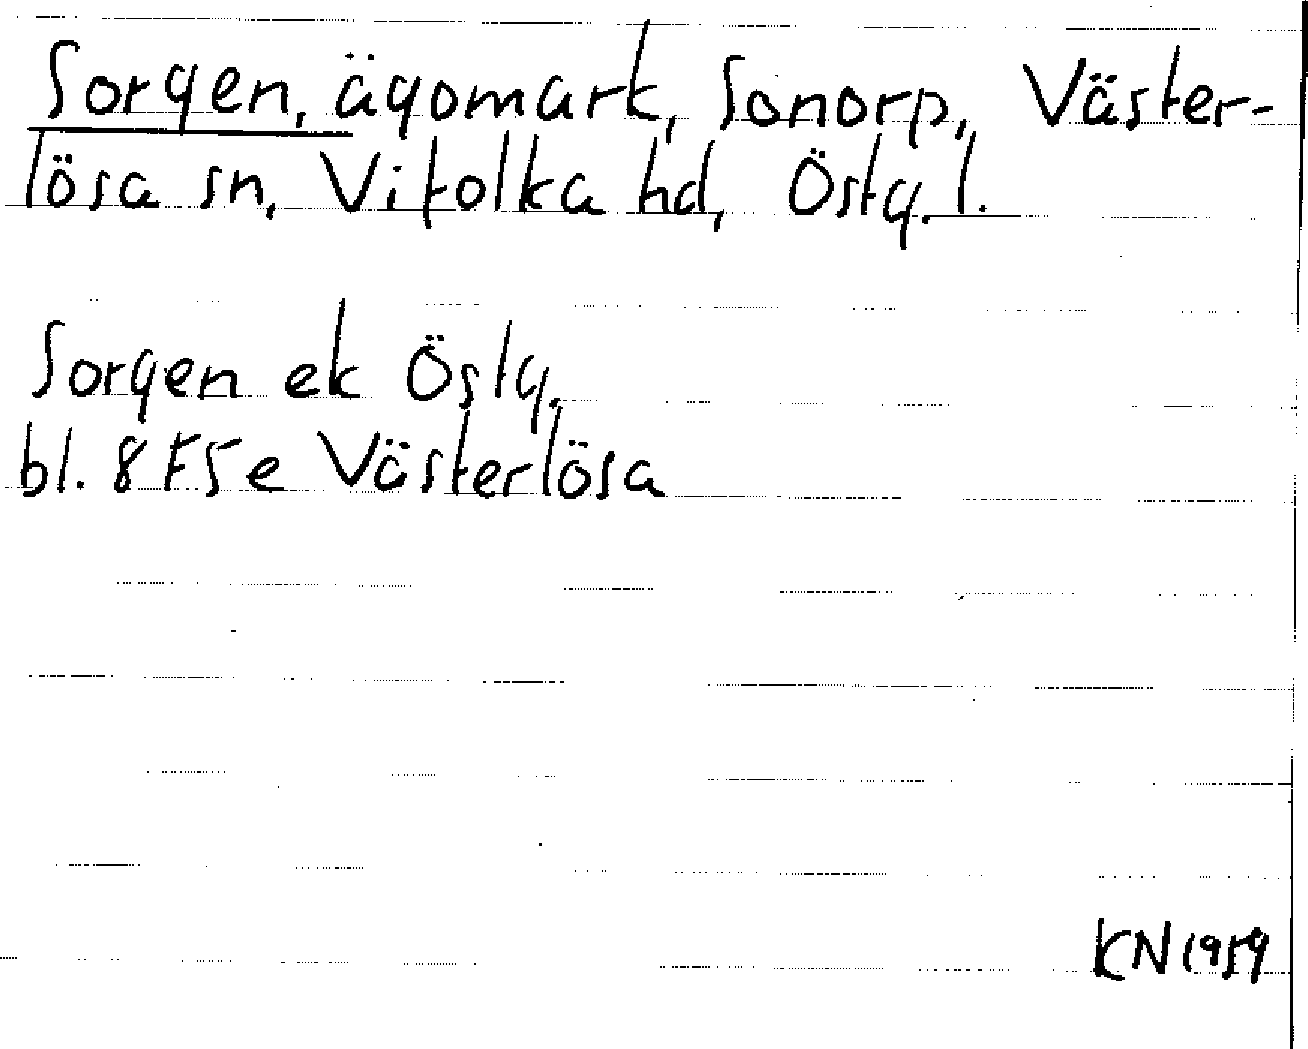 Sorgen, ägomark, Sonorp, Väster-
lösa sn, Vifolka hd, Östg. l.
Sorgen ek Östg.
bl. 8 F 5 e Västerlösa
KN 1959